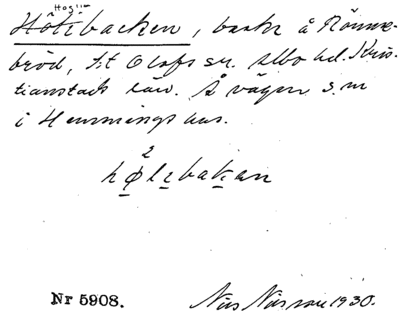 Höhsbacken, backe å Rönne-
bröd, S:t Olofs sn. Albo hd. Kris-
tianstads län. Å vägen s. m
i Hemmings hus.
2
hølsbakan
Nr 5908.
Nils Nilsson 1930.